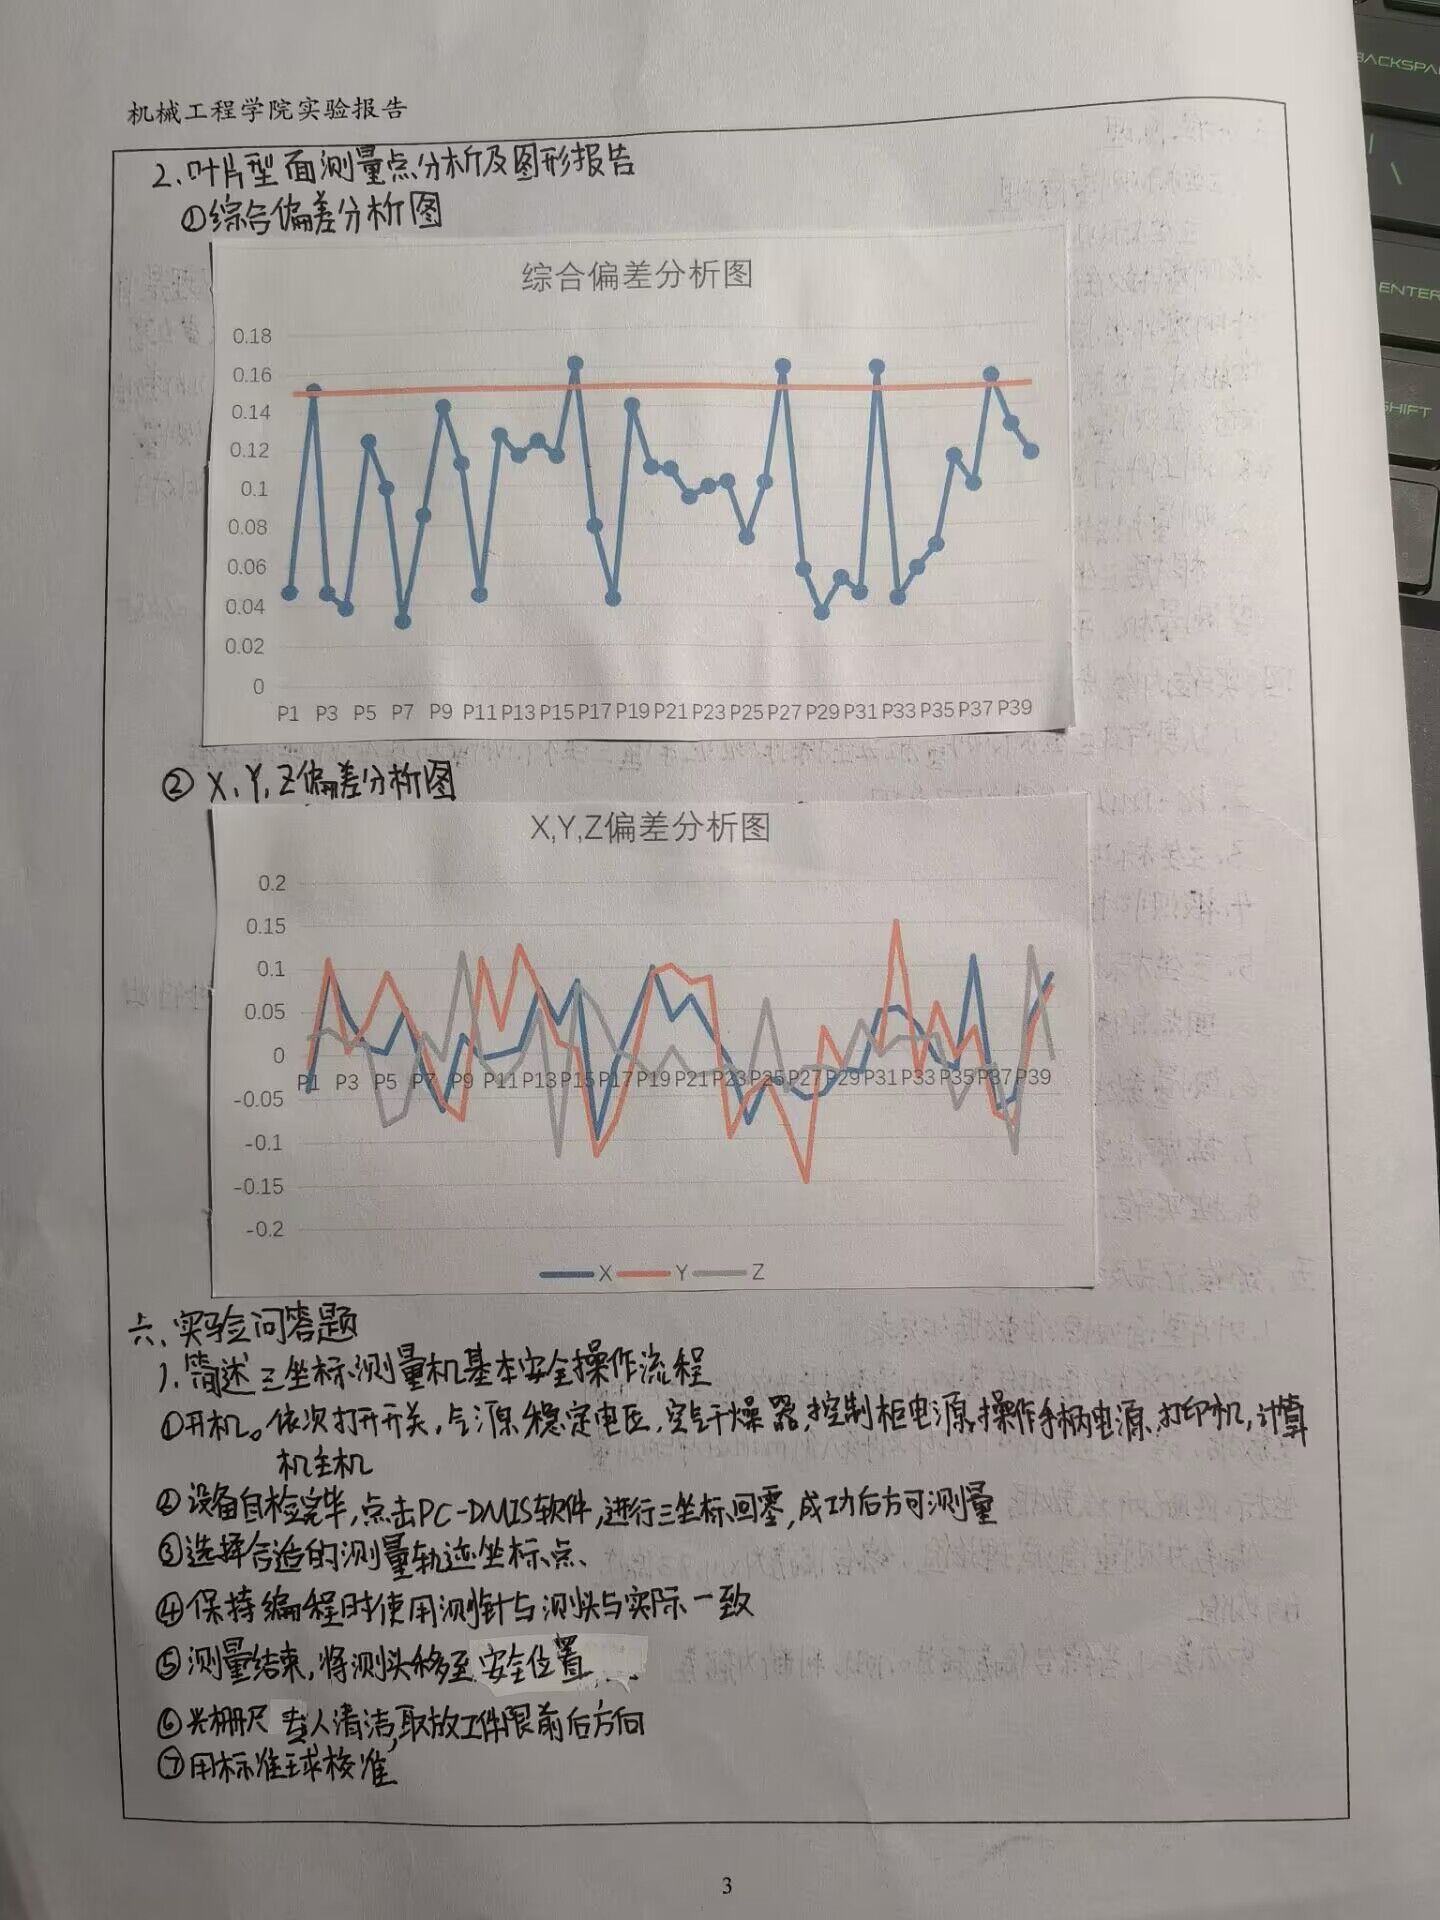 机械工程学院实验报告
2、叶片型面测量点分析及图形报告
①综合偏差分析图
综合偏差分析图
0.18
0.16
0.14
0.12
0.1
0.08
0.06
0.04
0.02
0
P1 P3 P5 P7 P9 P11 P13 P15 P17 P19 P21 P23 P25 P27 P29 P31 P33 P35 P37 P39
② X、Y、Z偏差分析图
X,Y,Z偏差分析图
0.2
0.15
0.1
0.05
0
P1 P3 P5 P7 P9 P11 P13 P15 P17 P19 P21 P23 P25 P27 P29 P31 P33 P35 P37 P39
-0.05
-0.1
-0.15
-0.2
X Y Z
六、实验问答题
1、简述三坐标测量机基本安全操作流程
①开机。依次打开开关,气源稳定电压,空气干燥器,控制柜电源,操作手柄电源,打印机,计算
机主机
②设备自检完毕,点击PC-DMIS软件,进行三坐标回零,成功后方可测量
③选择合适的测量轨迹坐标点、
④保持编程时使用测针与测头与实际一致
⑤测量结束,将测头移至安全位置
⑥光栅尺专人清洁,取放工件限前后方向
⑦用标准球校准
3
BACKSPA
ENTER
SHIFT